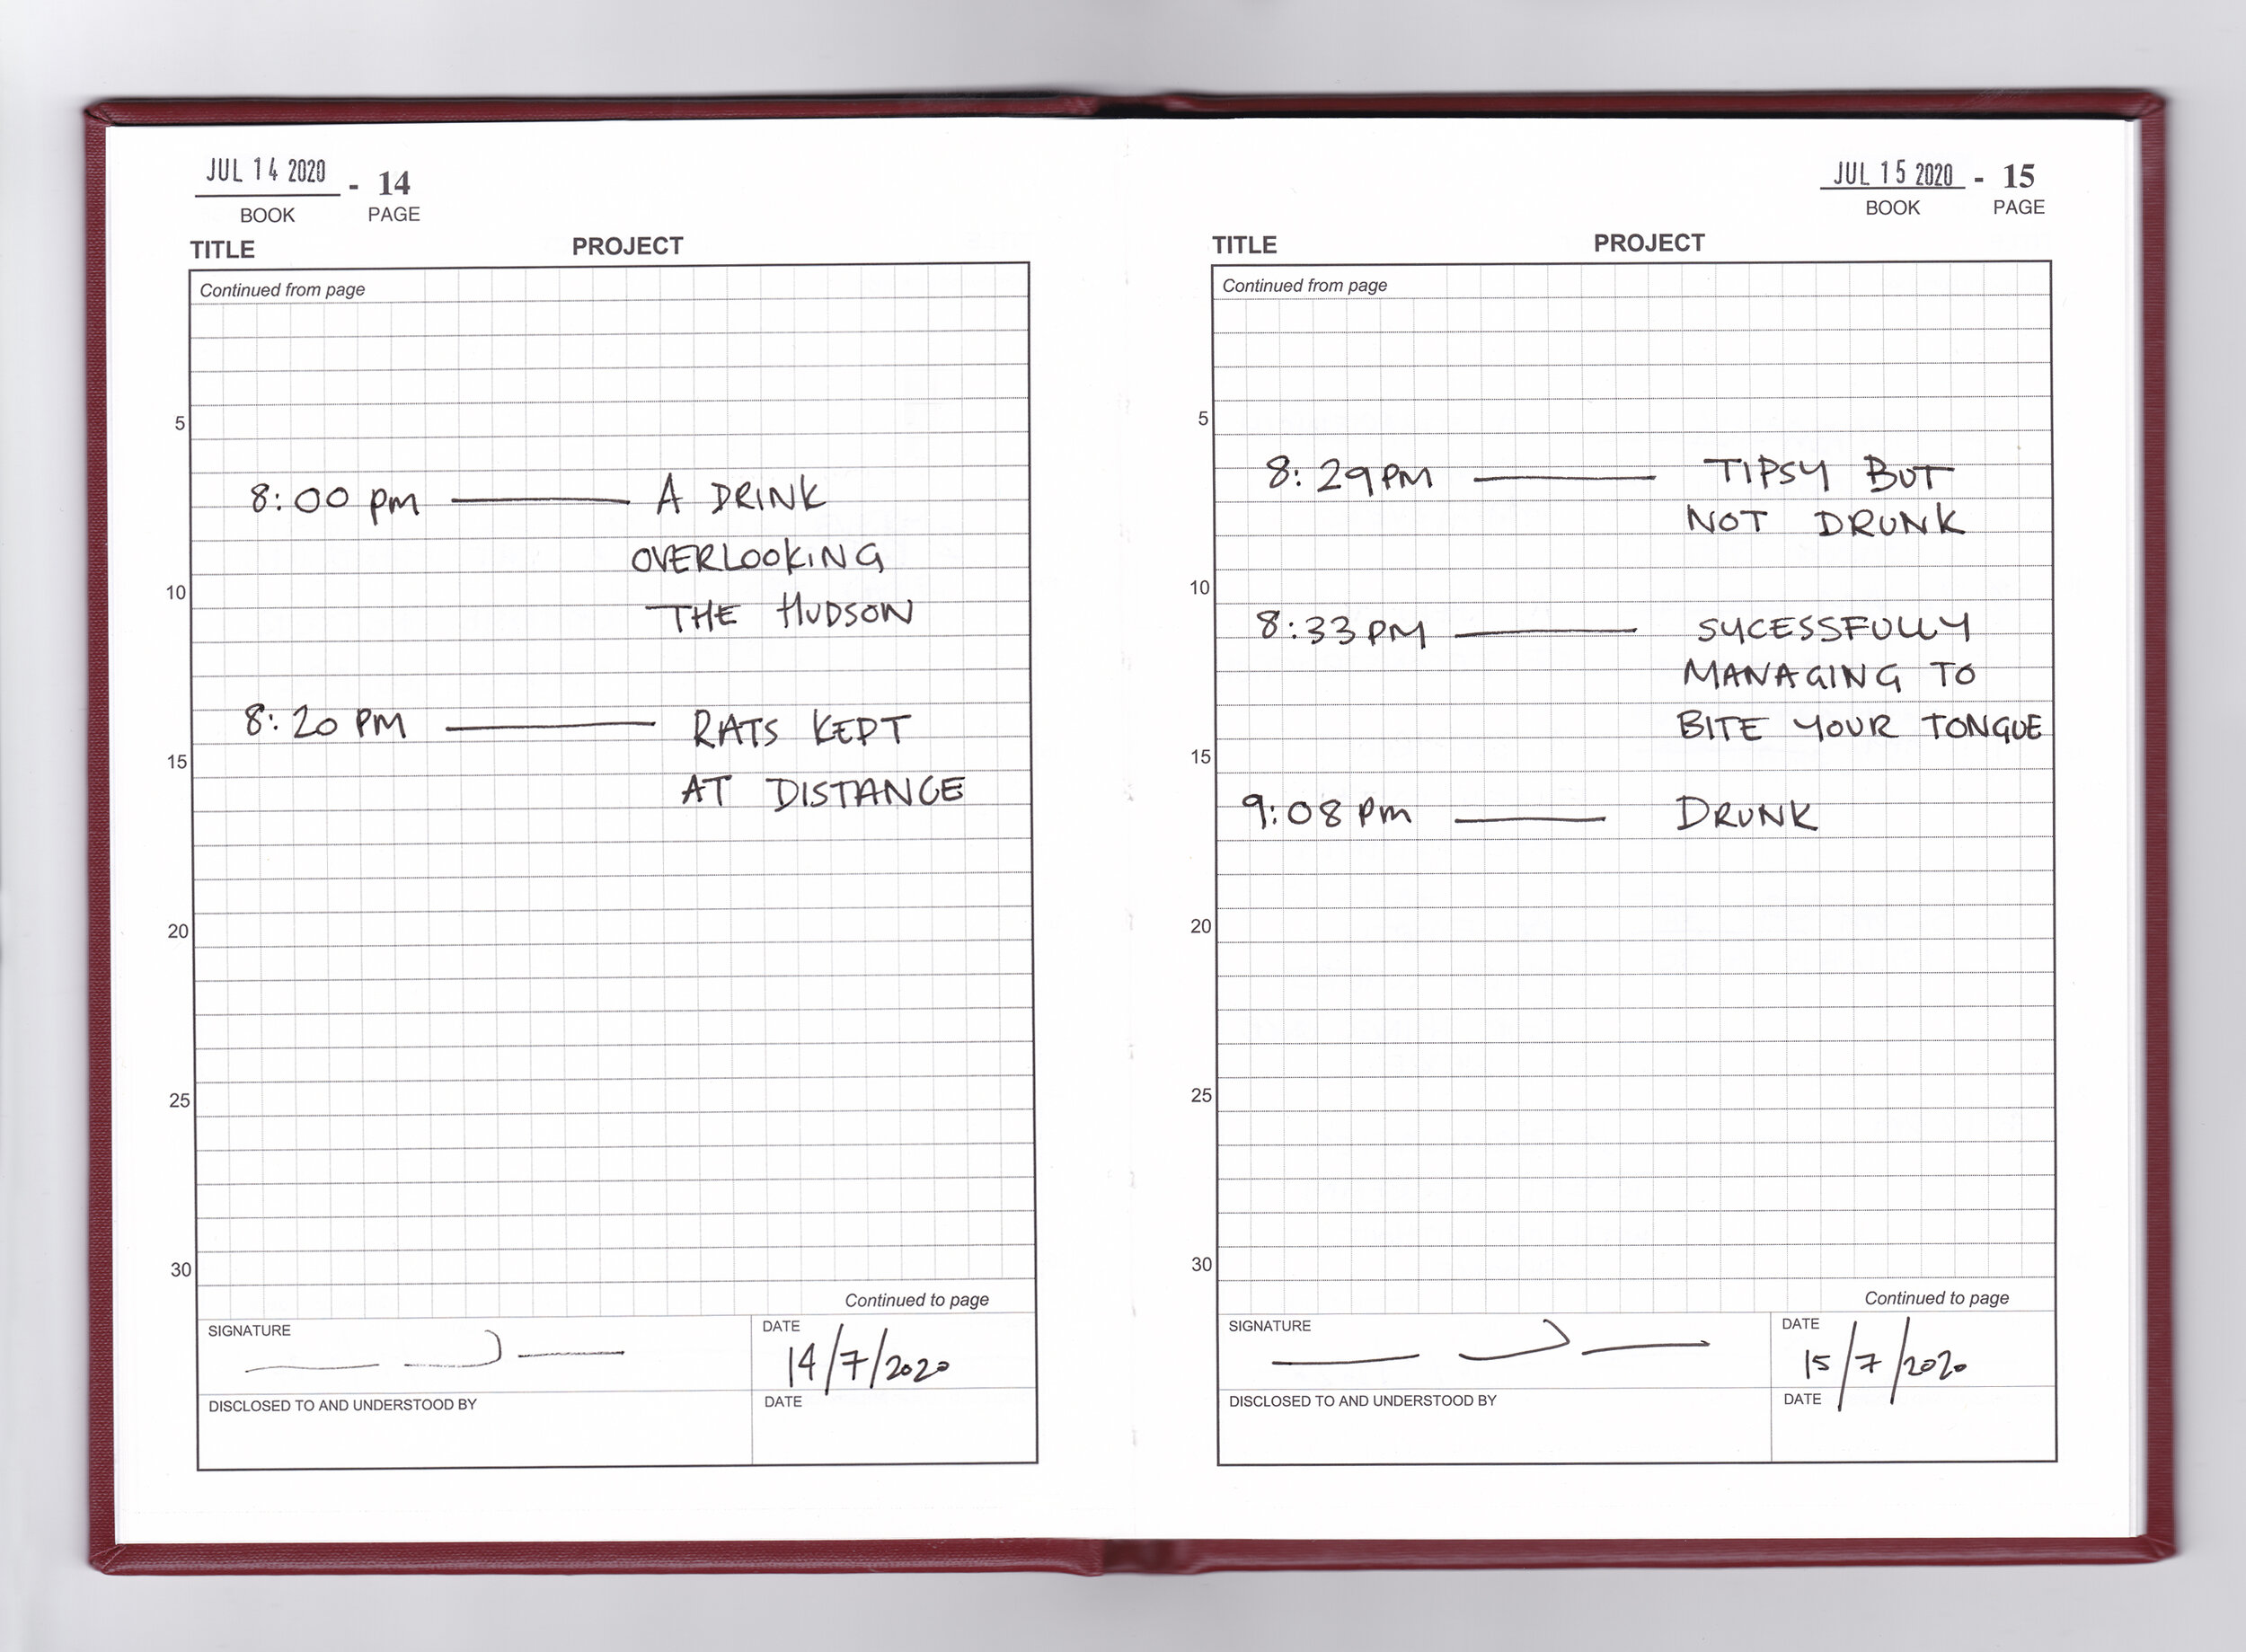 JUL 14 2020 - 14
BOOK PAGE
TITLE PROJECT
Continued from page
5
8:00 pm — A DRINK
OVERLOOKING
10
THE HUDSON
8:20 PM — RATS KEPT
15
AT DISTANCE
20
25
30
Continued to page
SIGNATURE DATE
14/7/2020
DISCLOSED TO AND UNDERSTOOD BY DATE
JUL 15 2020 - 15
BOOK PAGE
TITLE PROJECT
Continued from page
5
8:29PM — TIPSY BUT
NOT DRUNK
10
8:33PM — SUCESSFULLY
MANAGING TO
BITE YOUR TONGUE
15
9:08 pm — DRUNK
20
25
30
Continued to page
SIGNATURE DATE
15/7/2020
DISCLOSED TO AND UNDERSTOOD BY DATE